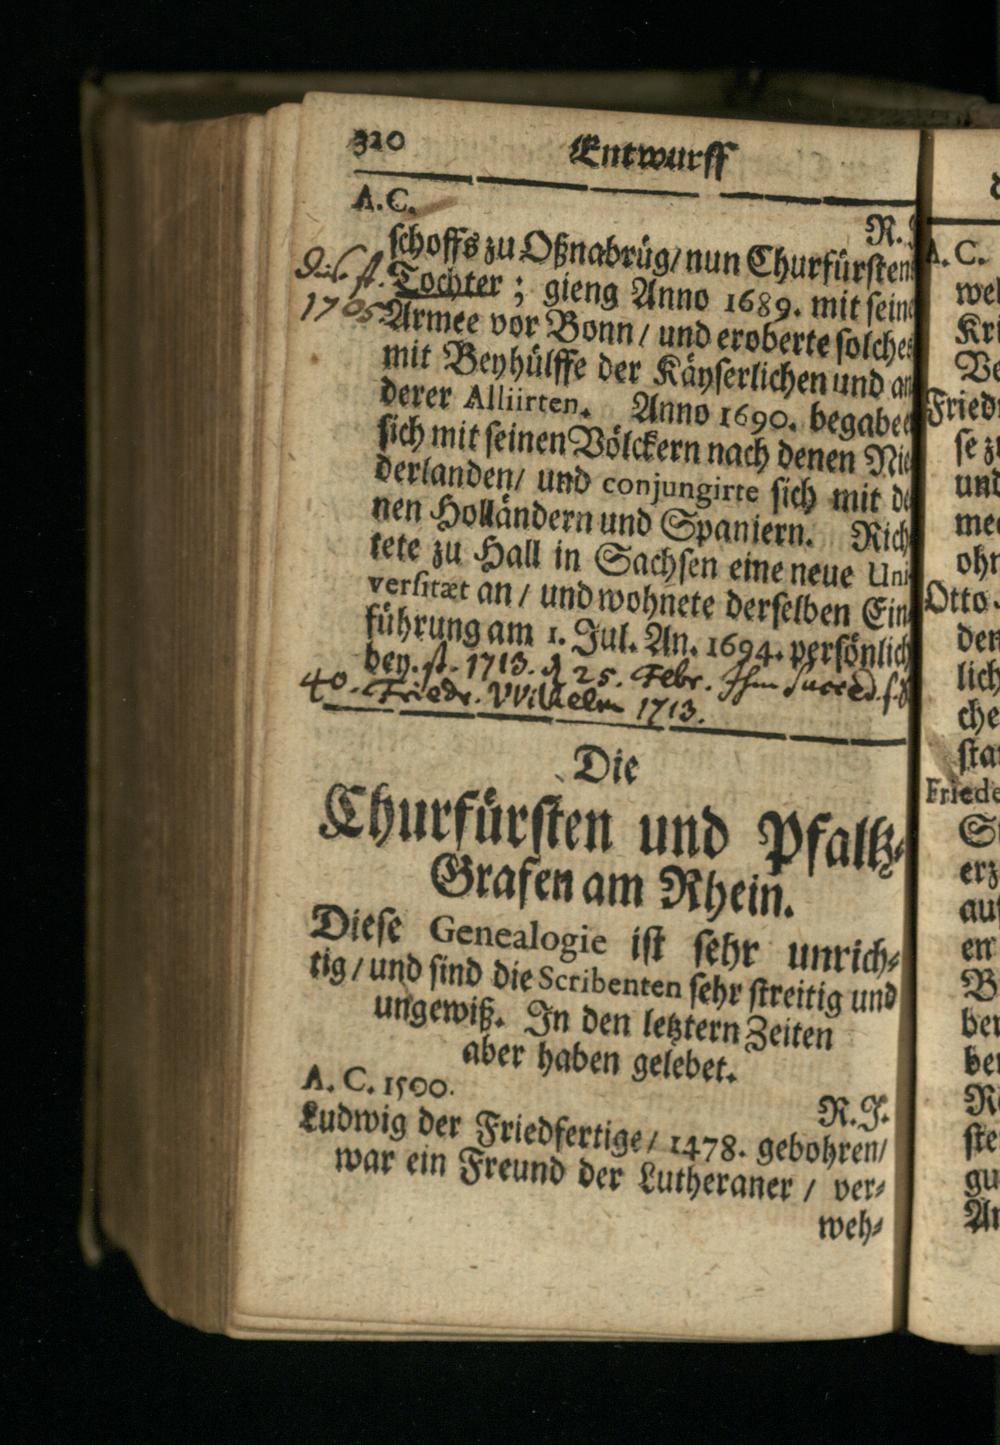 320 Entwurff
A.C. R.
schoffs zu Oßnabrüg/ nun Churfürsten
Tochter ; gieng Anno 1689. mit seine
1705
Armee vor Bonn / und eroberte solches
mit Beyhülffe der Käyserlichen und an
derer Alliirten. Anno 1690. begab er
sich mit seinen Völckern nach denen Nie
derlanden/ und conjungirte sich mit de
nen Holländern und Spaniern. Rich
tete zu Hall in Sachsen eine neue Uni
versitæt an / und wohnete derselben Ein
führung am 1. Jul. An. 1694. persönlich
bey. st. 1713. d 25. Febr. Ihm succed.
40. Friedr. Wilhelm 1713.
Die
Churfürsten und Pfaltz-
Grafen am Rhein.
Diese Genealogie ist sehr unrich-
tig / und sind die Scribenten sehr streitig und
ungewiß. In den letztern Zeiten
aber haben gelebet.
A. C. 1500. R.J.
Ludwig der Friedfertige / 1478. gebohren/
war ein Freund der Lutheraner / ver-
weh-
A. C.
wel
Kri
Ve
Fried
se zu
und
me
ohn
Otto
den
lich
che
sta
Friede
erz
auf
B
ber
ber
ste
gu
An